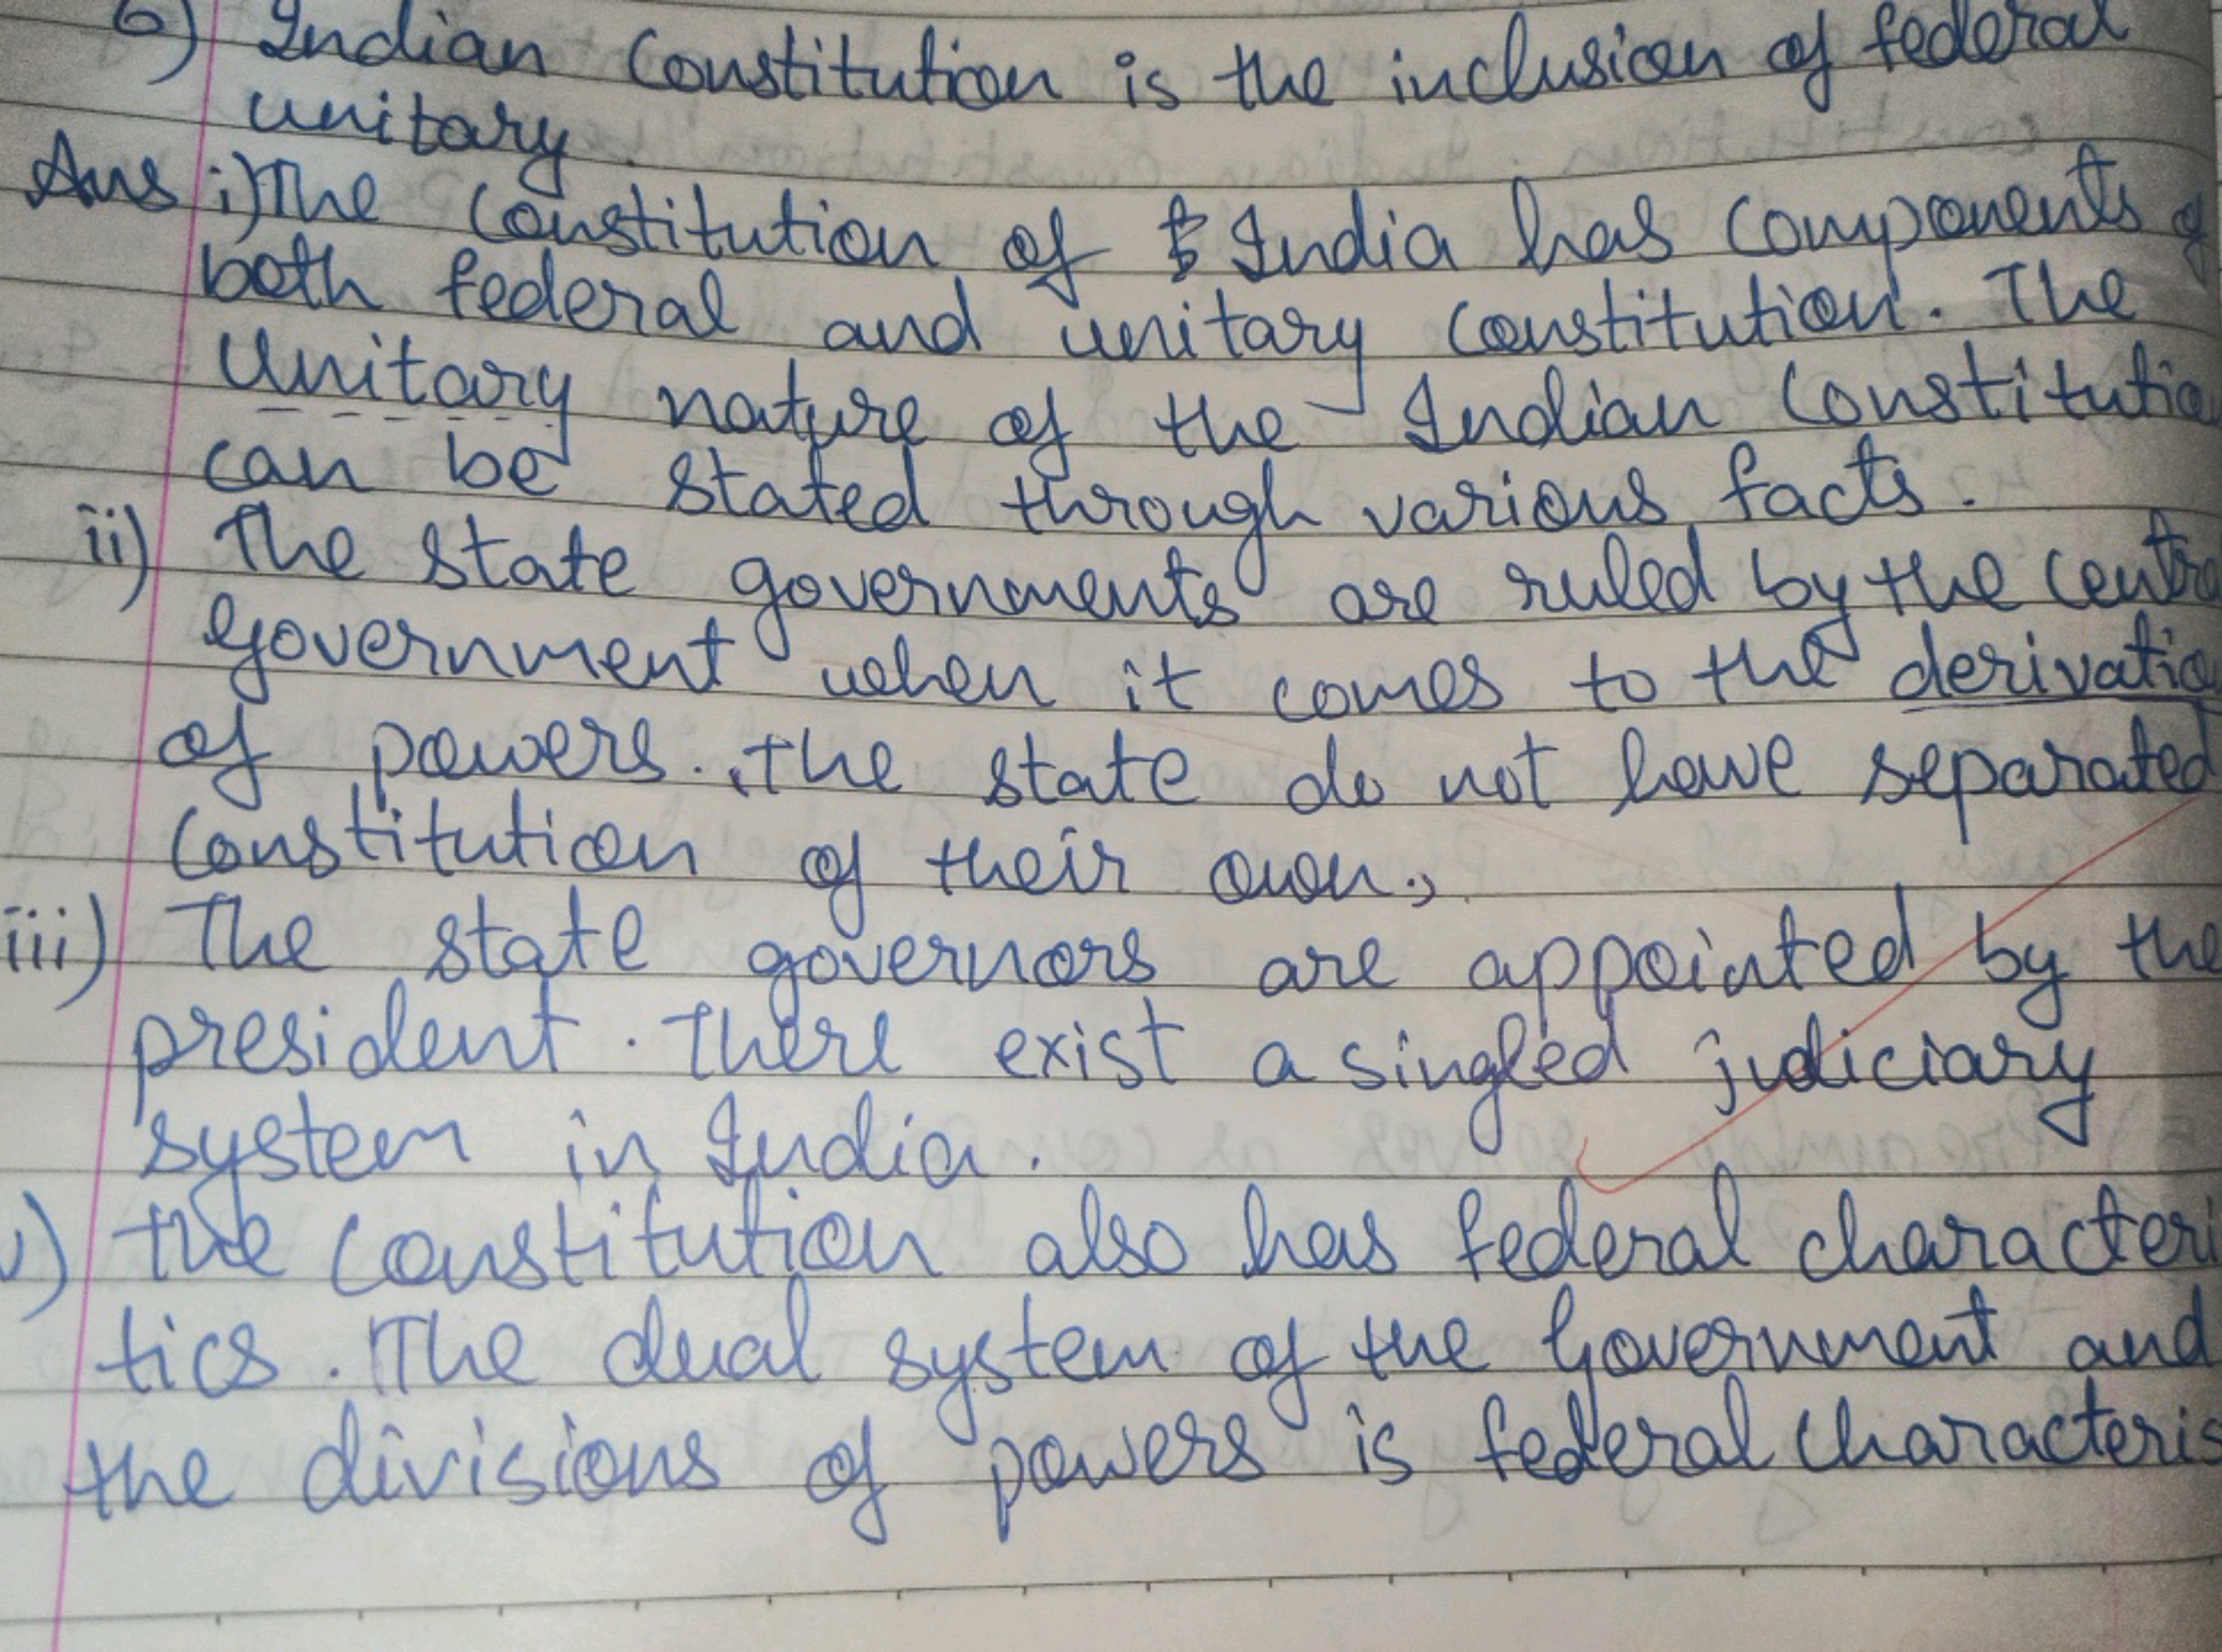 6) Indian Constitution is the inclusion of federal
unitary.
Ans i) The Constitution of India has components of
both federal and unitary Constitution. The
Unitary nature of the Indian Constitutio
can be stated through various facts.
ii) The state governments are ruled by the Centra
Government when it comes to the derivatio
of powers. The state do not have separated
Constitution of their own.,
iii) The state governors are appointed by the
president. There exist a singled judiciary
system in India.
v) The Constitution also has federal characteri
tics. The dual system of the Government and
the divisions of powers is federal characteris